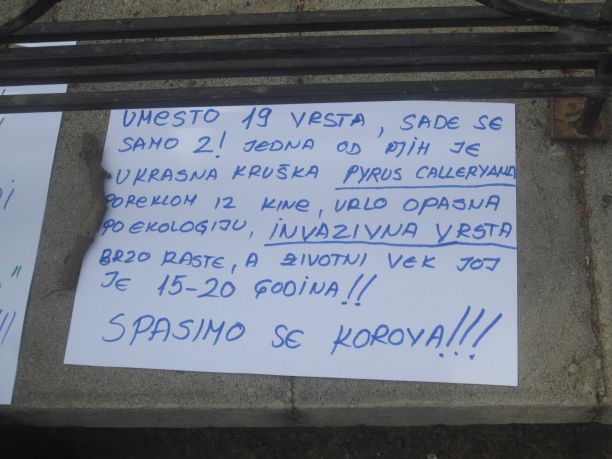 UMESTO 19 VRSTA, SADE SE
SAMO 2! JEDNA OD NJIH JE
UKRASNA KRUŠKA PYRUS CALLERYANA
POREKLOM IZ KINE, VRLO OPASNA
PO EKOLOGIJU, INVAZIVNA VRSTA
BRZO RASTE, A ŽIVOTNI VEK JOJ
JE 15-20 GODINA!!
SPASIMO SE KOROVA!!!